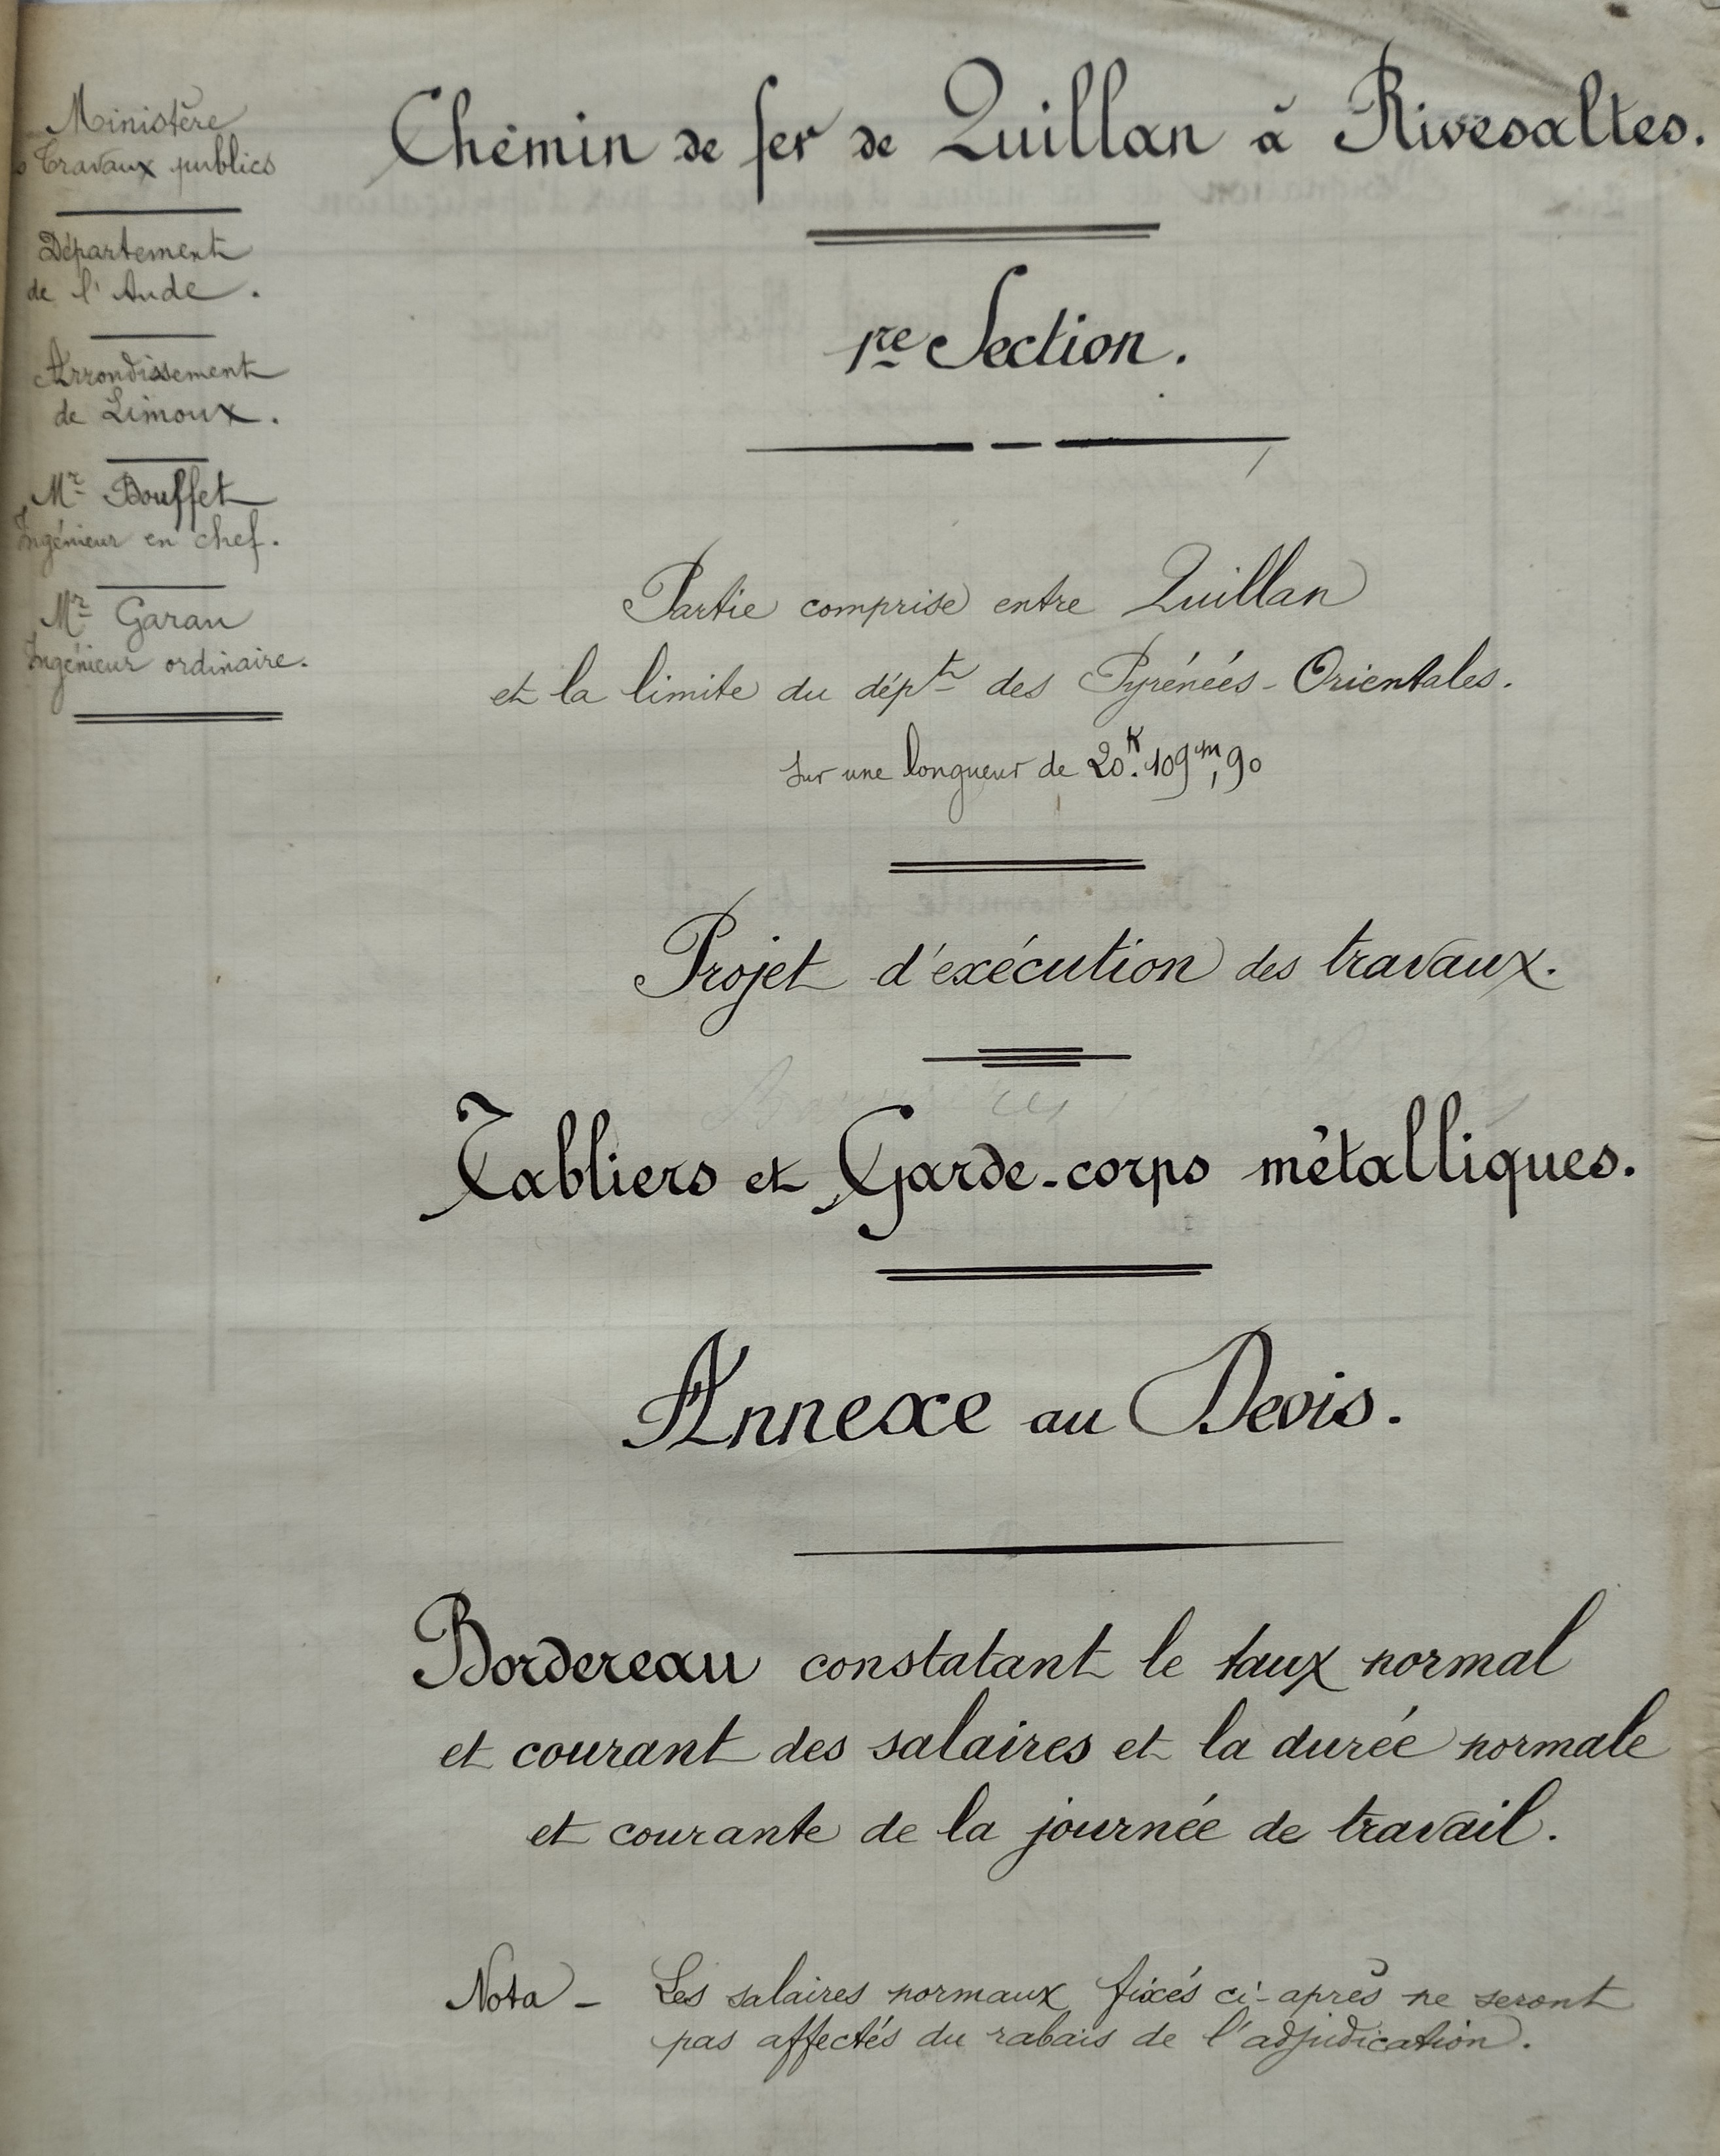 Ministère
s Travaux publics
Département
de l'Aude.
Arrondissement
de Limoux.
Mr Bouffet
Ingénieur en chef.
Mr Garau
Ingénieur ordinaire.
Chemin de fer de Quillan à Rivesaltes.
1re Section.
Partie comprise entre Quillan
et la limite du dépt des Pyrénéés-Orientales.
sur une longueur de 20K.109m,90
Projet d'exécution des travaux.
Tabliers et Garde-corps métalliques.
Annexe au Devis.
Bordereau constatant le taux normal
et courant des salaires et la durée normale
et courante de la journée de travail.
Nota - Les salaires normaux fixés ci-après ne seront
pas affectés du rabais de l'adjudication.